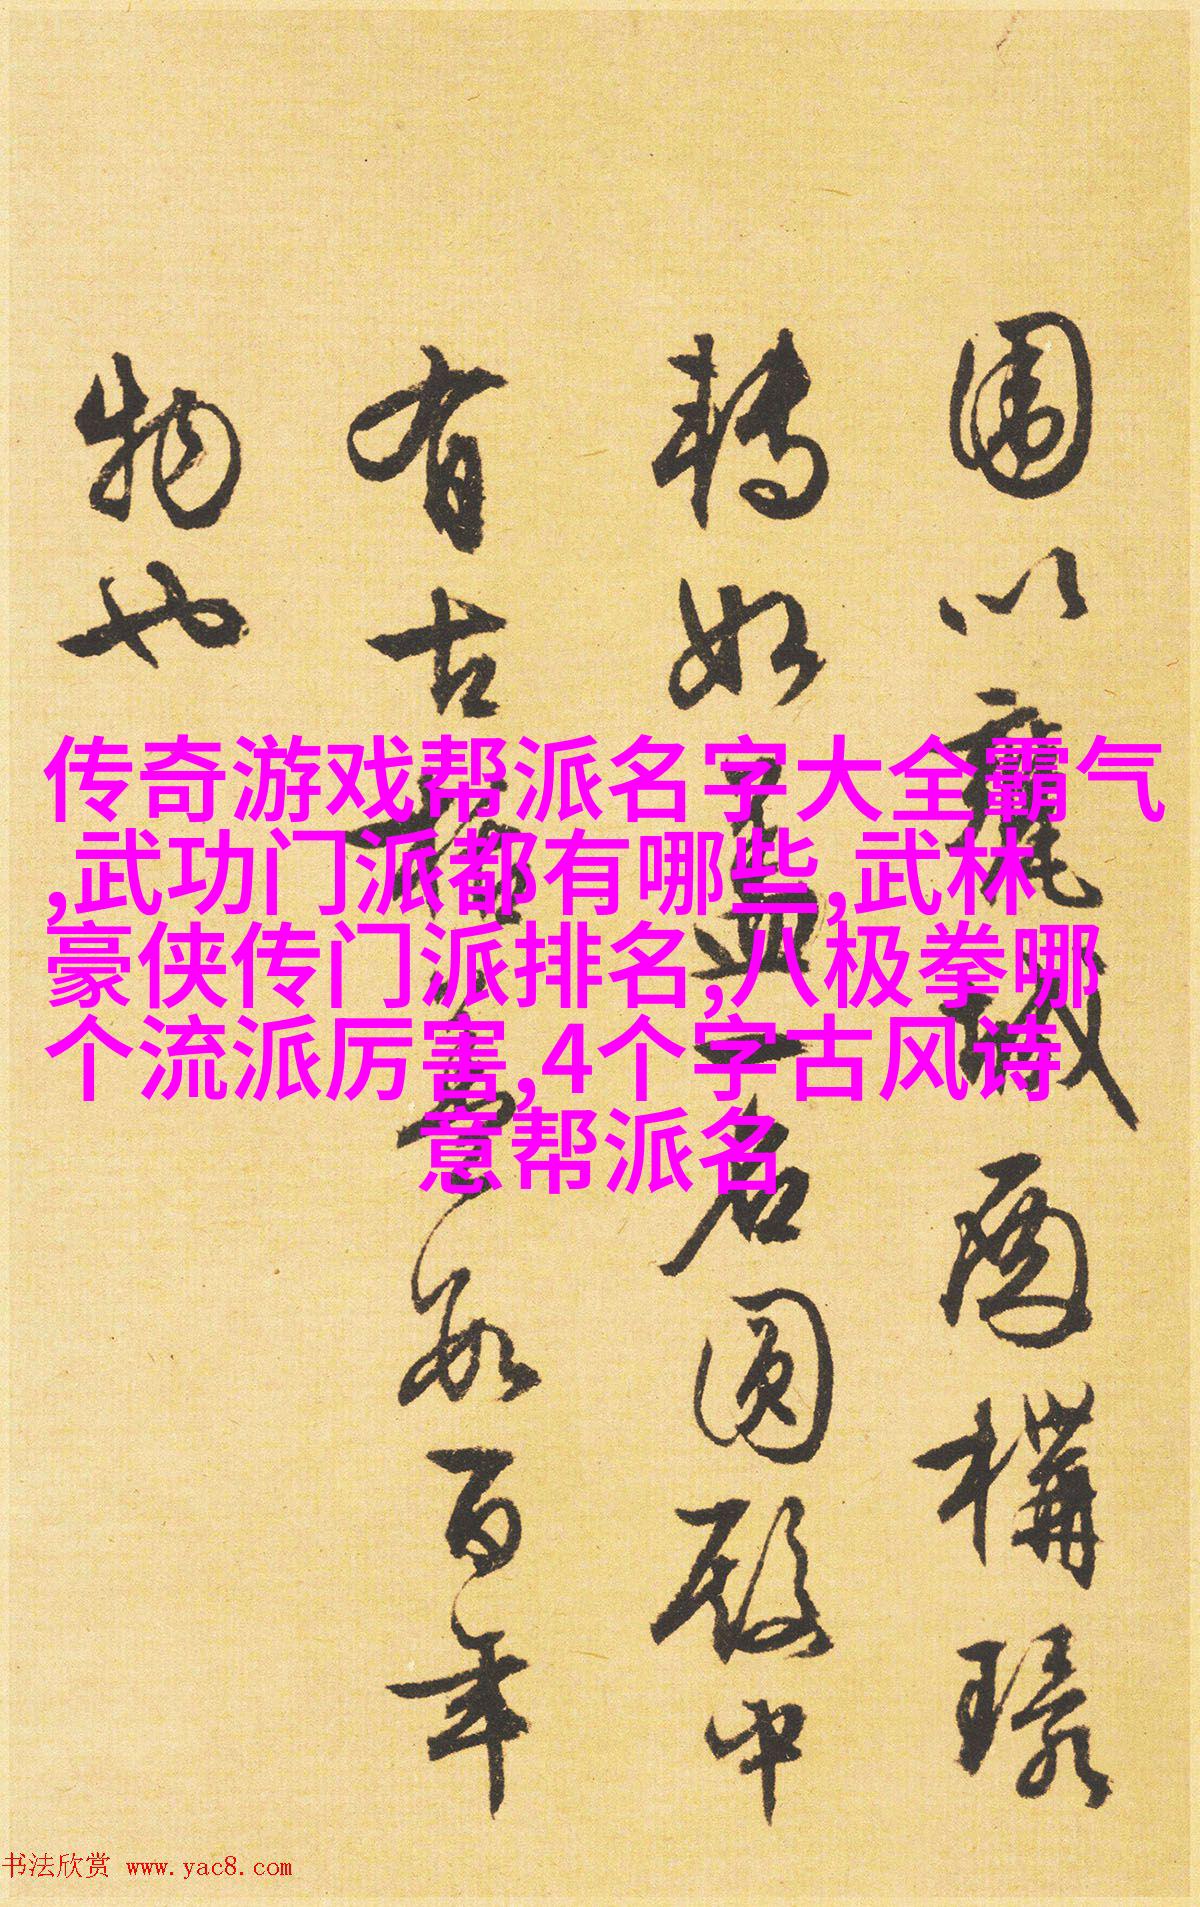 围以甕城两构环
转如盖一名圆殿中
有古
百年
物也
传奇游戏帮派名字大全霸气
,武功门派都有哪些,武林
豪侠传门派排名,八极拳哪
个流派厉害,4个字古风诗
意帮派名
书法欣赏 www.yac8.com